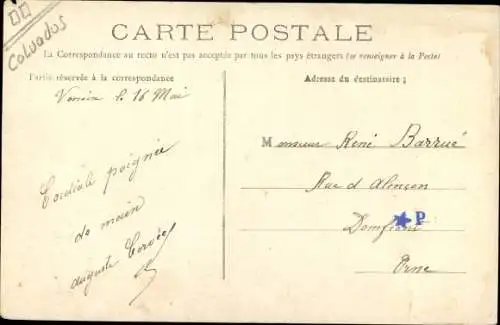 Calvados
CARTE POSTALE
La Correspondance au recto n'est pas acceptée par tous les pays étrangers (se renseigner à la Poste)
Partie réservée à la correspondance
Adresse du destinataire ;
le 16 Mai
Monsieur René Barrué
Cordiale poignée
Rue d'Alençon
de main
P
Domfront
auguste
Orne